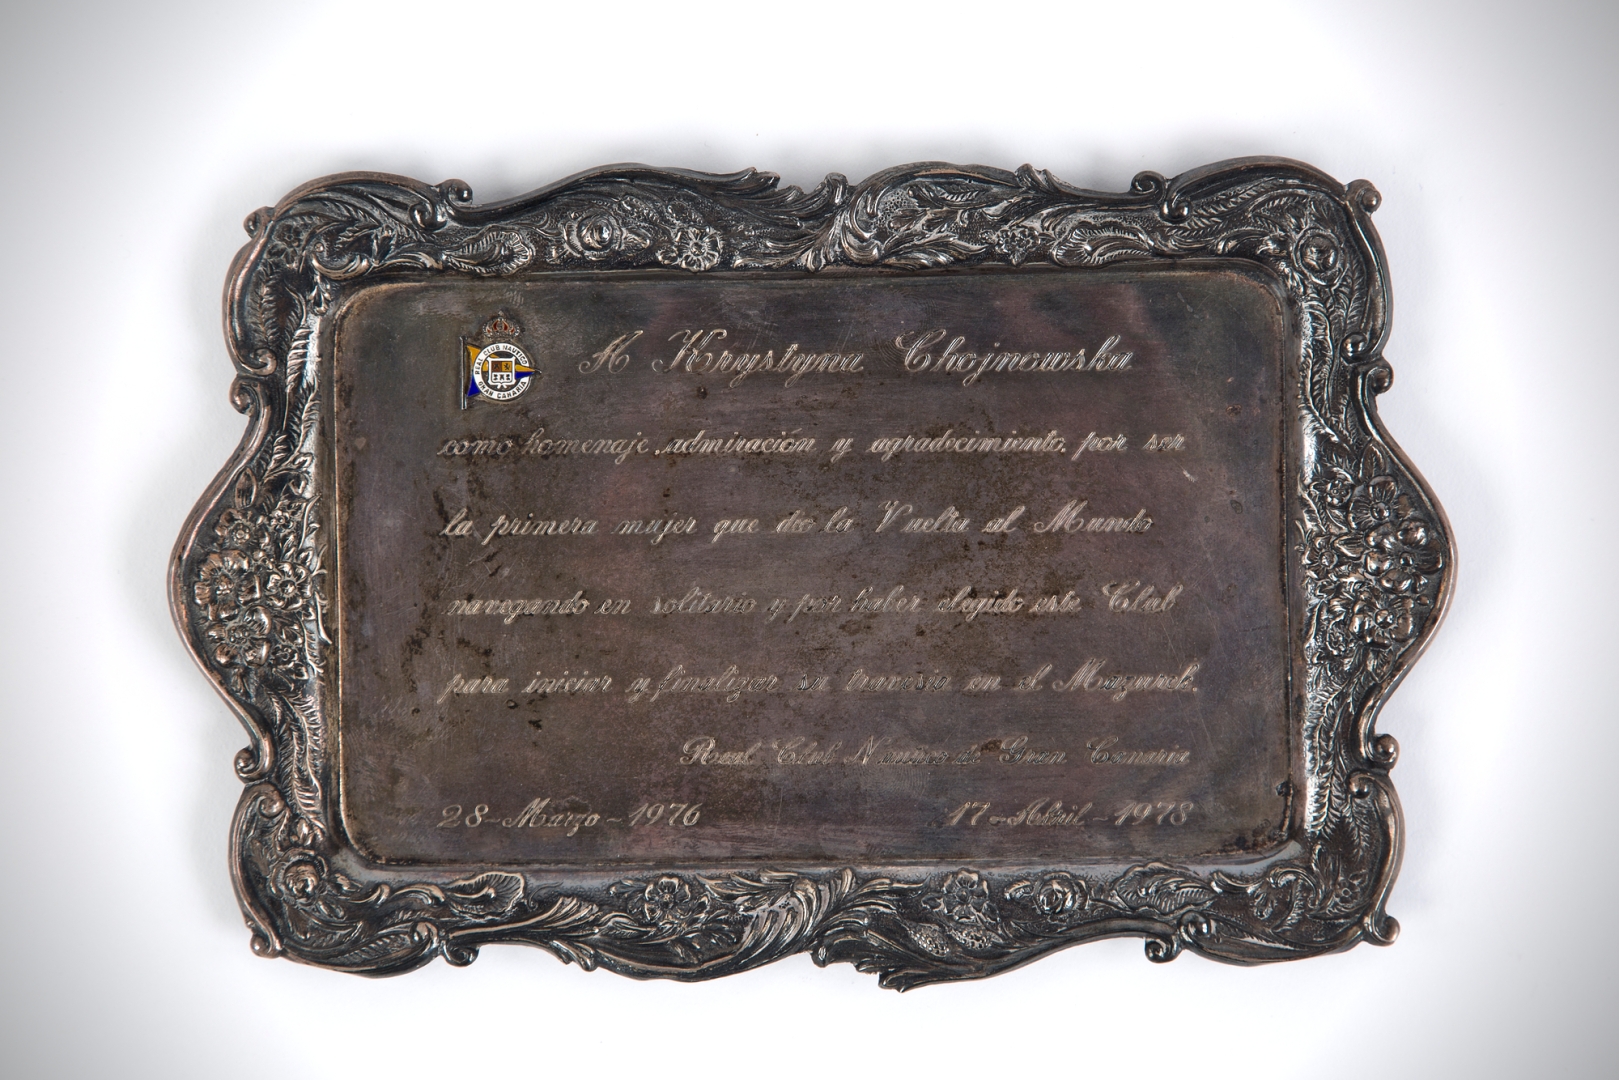 REAL CLUB NAUTICO
GRAN CANARIA
A Krystyna Chojnowska
como homenaje, admiración y agradecimiento, por ser
la primera mujer que dio la Vuelta al Mundo
navegando en solitario y por haber elegido este Club
para iniciar y finalizar su travesia en el Mazurek.
Real Club Naútico de Gran Canaria
28-Marzo-1976 17-Abril-1978